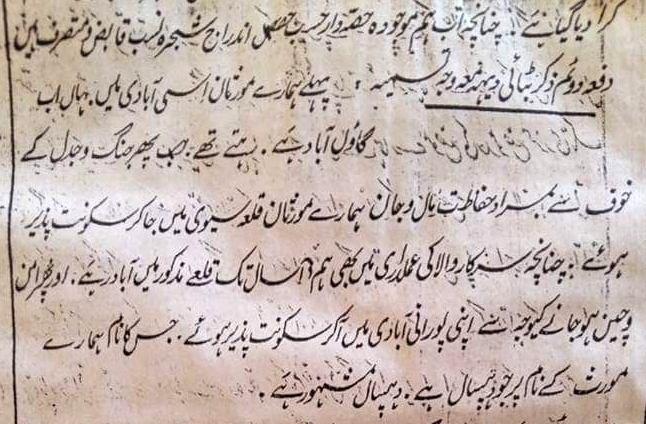 کرا دیا گیا ہے۔ چنانچہ اب ہم موجودہ حصہ دار حسب حصص اندراج شجرہ نسب قابض و متصرف ہیں
دفعہ دوئم ذکر بٹائی دیہہ معہ وجہ تسمیہ : پہلے ہمارے مورثان اسی آبادی میں۔ جہاں اب
گاؤں آباد ہے۔ رہتے تھے۔ جب پھر جنگ و جدل کے
خوف سے بمراد حفاظت مال و جان ہمارے مورثان قلعہ سیوی میں جا کر سکونت پذیر
ہوئے۔ چنانچہ سرکار والا کی عملداری میں بھی ہم سال تک قلعے مذکور میں آباد رہے۔ اور پھر امن
و چین ہو جانے کیوجہ سے اپنی پورانی آبادی میں آکر سکونت پذیر ہوئے۔ جس کا نام ہمارے
مورث کے نام پر جو دہپال ہے۔ دہپال مشہور ہے۔